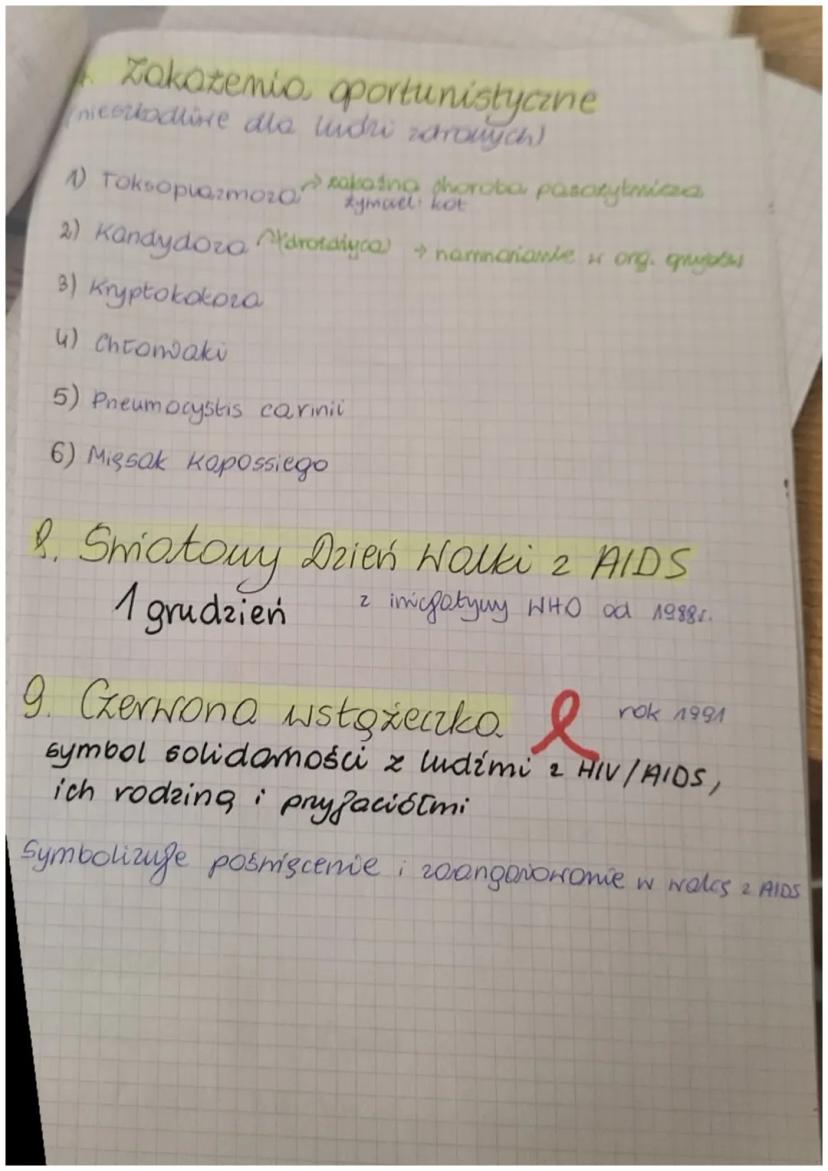 Zakażenia oportunistyczne
(nieszkodliwe dla ludzi zdrowych)
1) Toksoplazmoza → zakaźna choroba pasożytnicza
żywiciel: kot
2) Kandydoza (drożdżyca) → namnażanie w org. grzybów
3) Kryptokokoza
4) Chłoniaki
5) Pneumocystis carinii
6) Mięsak Kapossiego
8. Światowy Dzień Walki z AIDS
1 grudzień z inicjatywy WHO od 1988r.
9. Czerwona wstążeczka rok 1991
symbol solidarności z ludźmi z HIV/AIDS,
ich rodziną i przyjaciółmi
Symbolizuje poświęcenie i zaangażowanie w walcę z AIDS